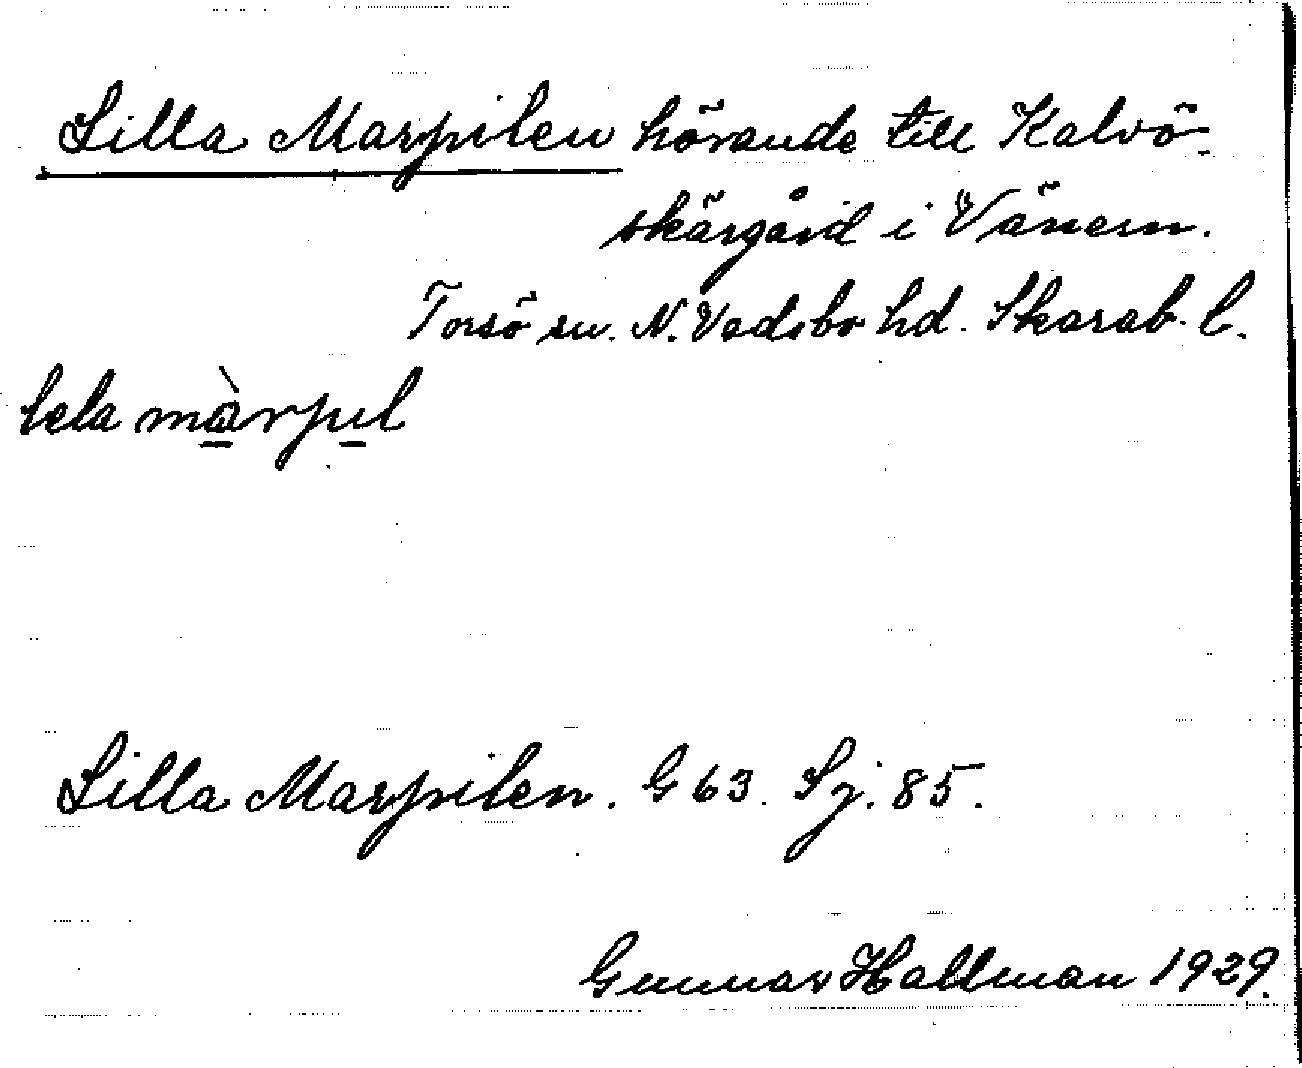 Lilla Marpilen hörande till Kalvö-
skärgård i Vänern.
Torsö sn. N. Vadsbo hd. Skarab. l.
lela màrpıl
Lilla Marpilen. G 63. Sj. 85.
Gunnar Hallman 1929.